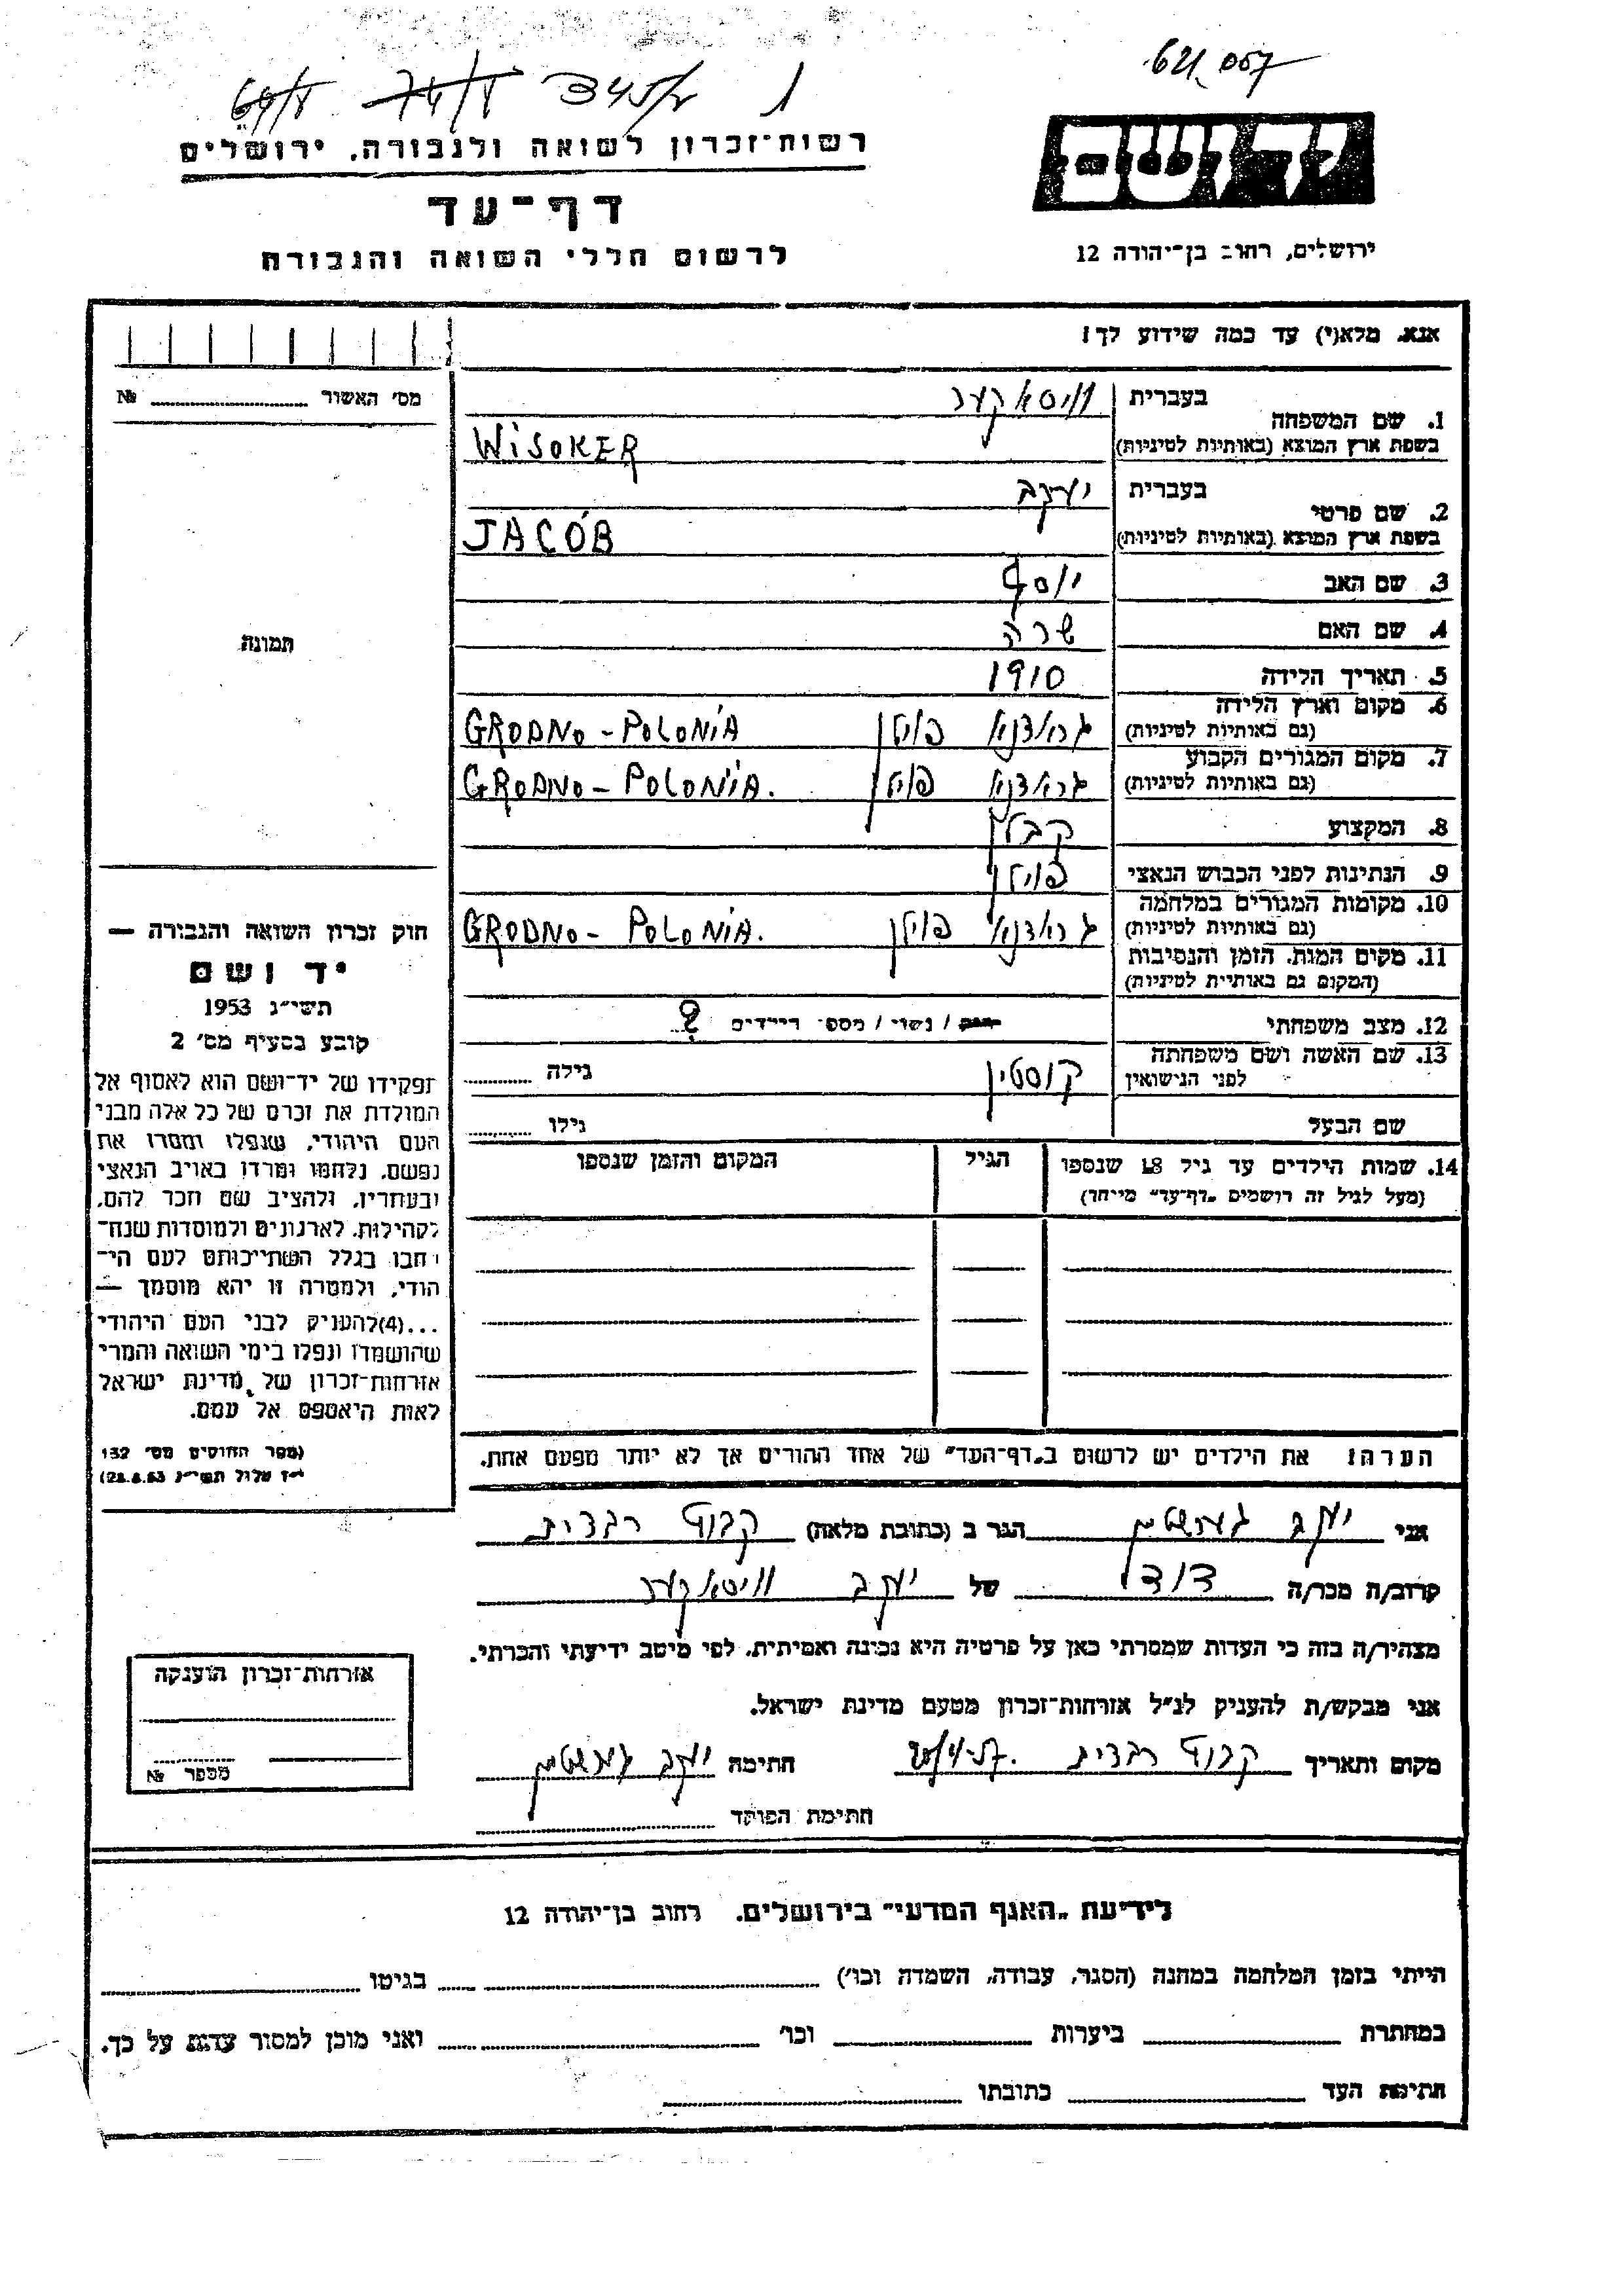 621.057
345/ 1
רשות־זכרון לשואה ולגבורה. ירושלים
יד ושם
דף־עד
לרשום חללי השואה והגבורה
ירושלים, רחוב בן־יהודה 12
אנא, מלא(י) עד כמה שידוע לך!
מס׳ האשור № 
1. שם המשפחה
בעברית וויסאקער
בשפת ארץ המוצא (באותיות לטיניות) WISOKER
2. שם פרטי
בעברית יעקב
בשפת ארץ המוצא (באותיות לטיניות) JACOB
3. שם האב יוסף
4. שם האם שרה
תמונה
5. תאריך הלידה 1910
6. מקום וארץ הלידה
(גם באותיות לטיניות) גראדנא פוילן GRODNO - POLONIA
7. מקום המגורים הקבוע
(גם באותיות לטיניות) גראדנא פוילן GRODNO - POLONIA.
8. המקצוע קבלן
9. הנתינות לפני הכבוש הנאצי פוילן
10. מקומות המגורים במלחמה
(גם באותיות לטיניות) גראדנא פוילן GRODNO - POLONIA.
11. מקום המות. הזמן והנסיבות
(המקום גם באותיות לטיניות)
12. מצב משפחתי רווק / נשוי / מספר הילדים 2
13. שם האשה ושם משפחתה
לפני הנישואין קוסטין גילה
שם הבעל גילו
14. שמות הילדים עד גיל 18 שנספו הגיל המקום והזמן שנספו
(מעל לגיל זה רושמים „דף־עד״ מייחד)
הערה: את הילדים יש לרשום ב„דף־העד״ של אחד ההורים אך לא יותר מפעם אחת.
חוק זכרון השואה והגבורה —
יד ושם
תשי״ג 1953
קובע בסעיף מס׳ 2
תפקידו של יד־ושם הוא לאסוף אל
המולדת את זכרם של כל אלה מבני
העם היהודי, שנפלו ומסרו את
נפשם, נלחמו ומרדו באויב הנאצי
ובעוזריו, ולהציב שם וזכר להם,
לקהילות, לארגונים ולמוסדות שנח־
רבו בגלל השתייכותם לעם הי־
הודי, ולמטרה זו יהא מוסמך —
...(4) להעניק לבני העם היהודי
שהושמדו ונפלו בימי השואה והמרי
אזרחות־זכרון של מדינת ישראל
לאות היאספם אל עמם.
(ספר החוקים מס׳ 132
י״ז אלול תשי״ג 28.8.53)
אני יעקב הגר ב (כתובת מלאה) קבוץ רבדים
קרוב/ה מכר/ה דודו של יעקב וויסאקער
מצהיר/ה בזה כי העדות שמסרתי כאן על פרטיה היא נכונה ואמיתית, לפי מיטב ידיעתי והכרתי.
אני מבקש/ת להעניק לנ״ל אזרחות־זכרון מטעם מדינת ישראל.
מקום ותאריך קבוץ רבדים חתימה יעקב
חתימת הפוקד
אזרחות־זכרון הוענקה
מספר №
לידיעת „האגף המדעי״ בירושלים. רחוב בן־יהודה 12
הייתי בזמן המלחמה במחנה (הסגר, עבודה, השמדה וכו׳) בגיטו
במחתרת ביערות וכו׳ ואני מוכן למסור עדות על כך.
חתימת העד כתובתו